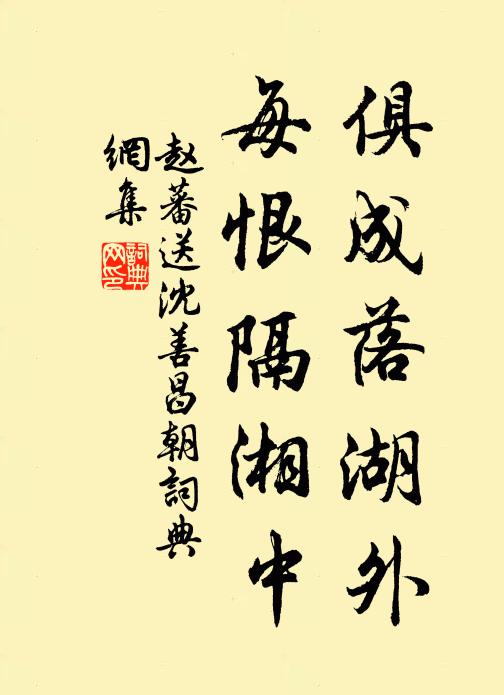 俱成落湖外
每恨隔湘中
赵蕃送沈善昌朝詞典
網集
詞典网印